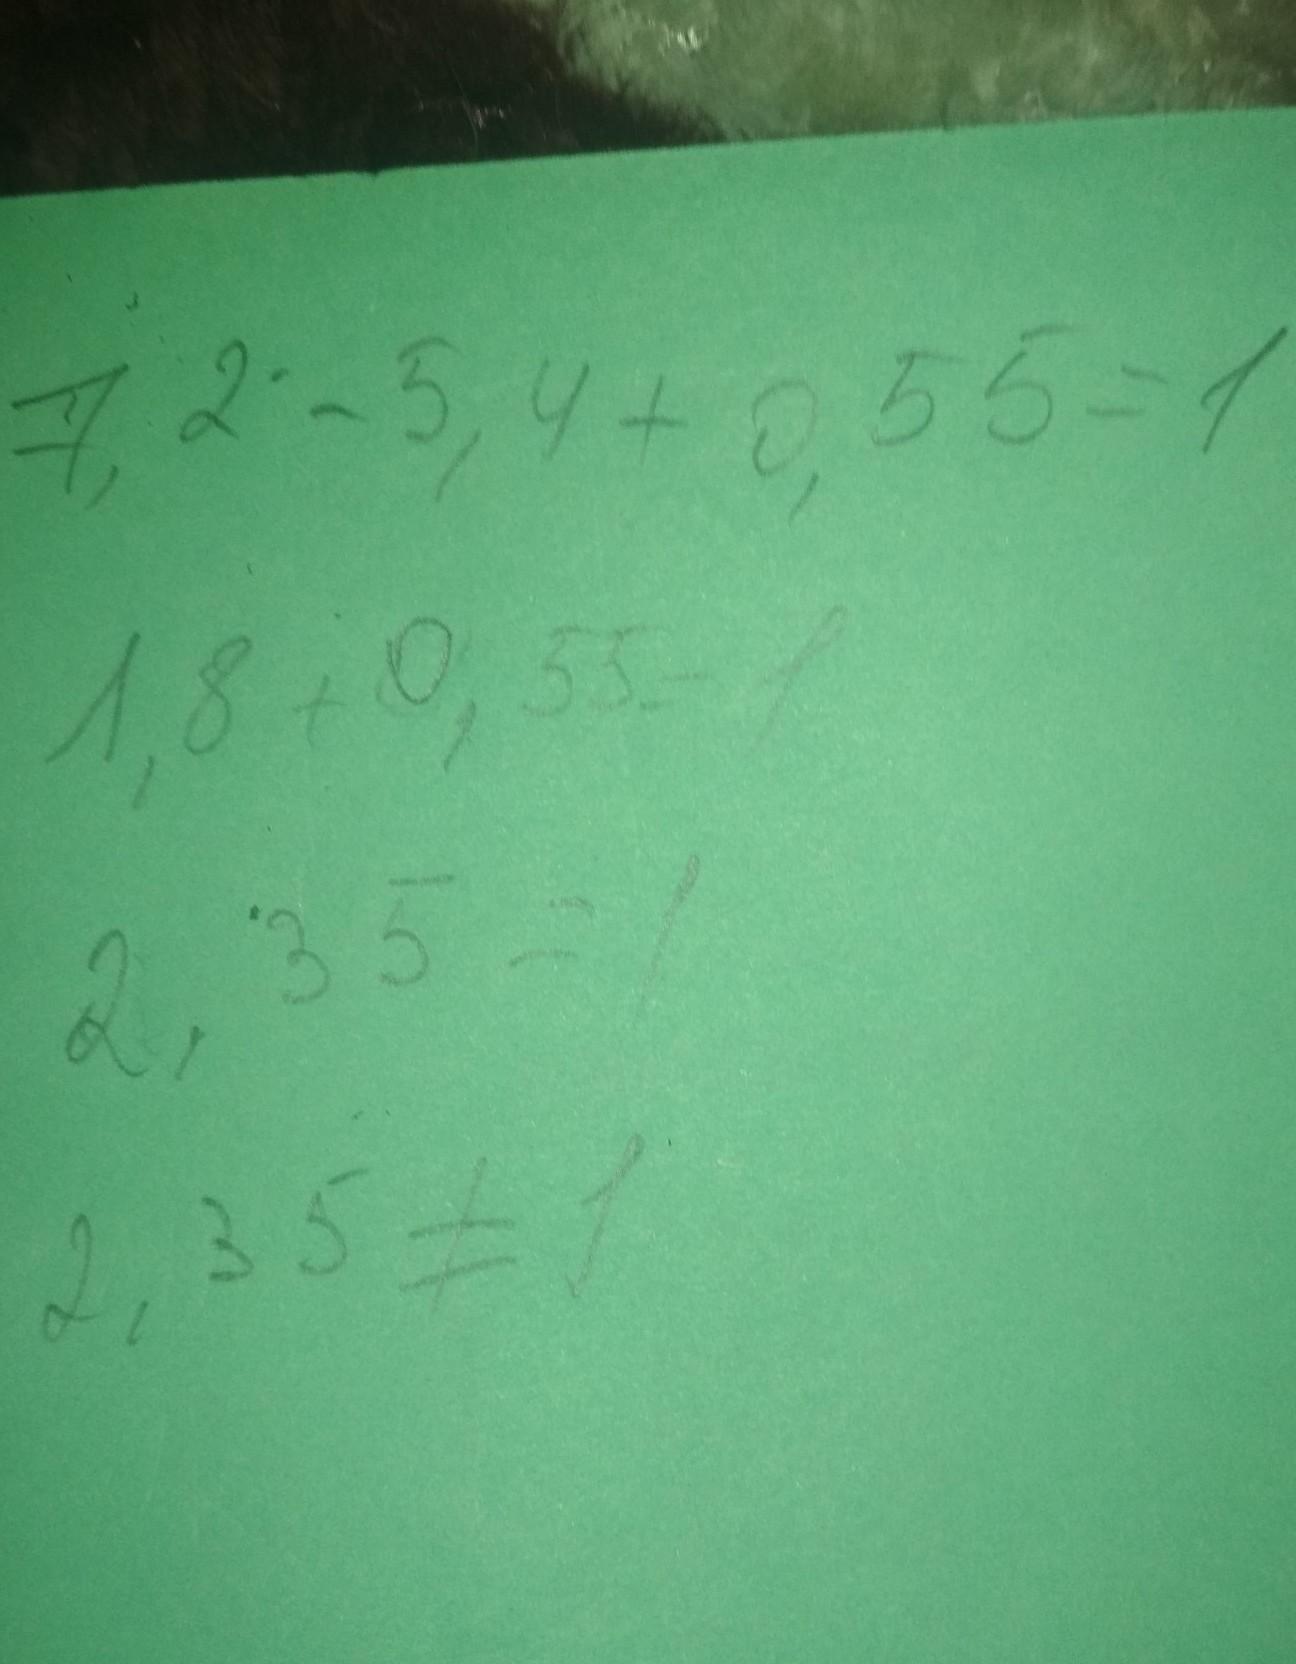 7,2-5,4+0,55=1
1,8+0,55=1
2,35=1
2,35≠1